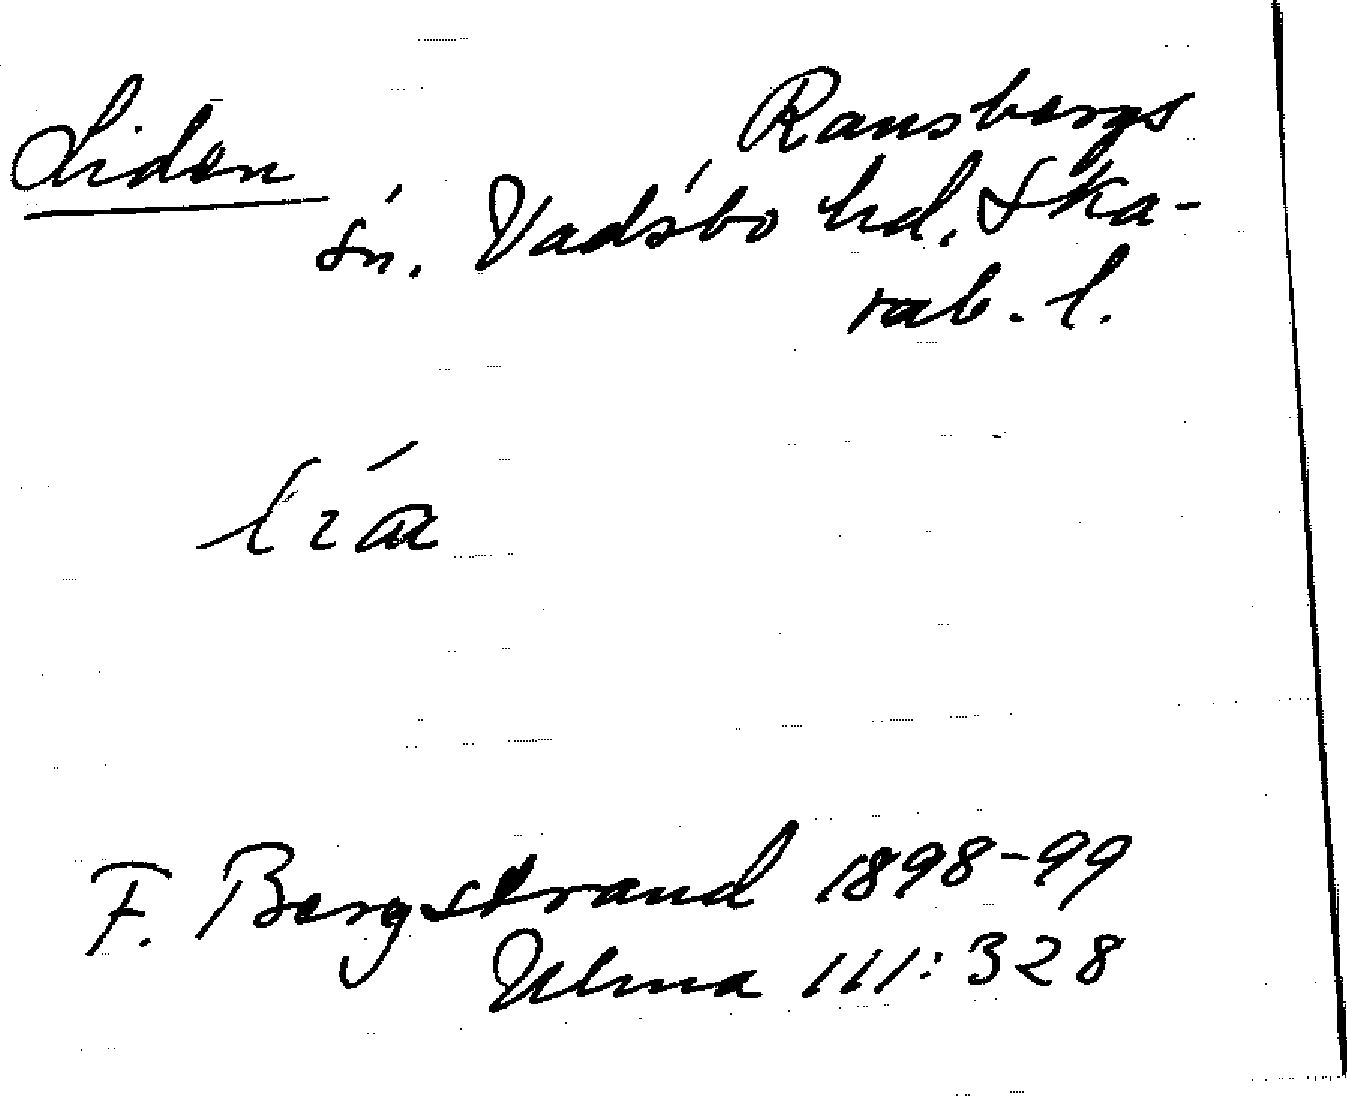 Liden
Ransbergs
sn. Vadsbo hd. Ska-
rab. l.
F. Bergstrand 1898-99
Ulma 111:328